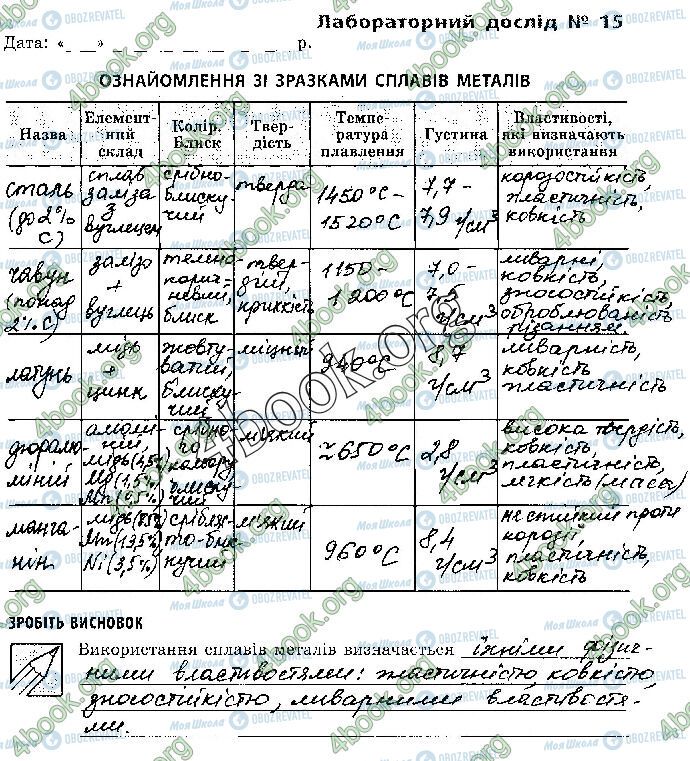 Лабораторний дослід № 15
Дата: « __ » __ __ __ __ __ __ р.
ОЗНАЙОМЛЕННЯ ЗІ ЗРАЗКАМИ СПЛАВІВ МЕТАЛІВ
Назва
Елемент-
ний
склад
Колір.
Блиск
Твер-
дість
Темпе-
ратура
плавлення
Густина
Властивості,
які визначають
використання
сталь
(до 2%
С)
сплав
заліза
з
вуглецем
срібно-
блиску-
чий
тверда
1450°C –
1520°C
7,7 –
7,9 г/см³
корозостійкість,
пластичність,
ковкість
чавун
(понад
2% С)
залізо
+
вуглець
темно-
корич-
невий,
блиск
твер-
дий,
крихкість
1150 –
1200°C
7,0 –
7,5
г/см³
ливарні,
ковкість,
зносостійкість,
оброблюваність
різанням
латунь
мідь
+
цинк
жовту-
ватий,
блиску-
чий
міцний
940°C
8,7
г/см³
ливарність,
ковкість
пластичність
дюралю-
міній
алюмі-
ній,
мідь (4,5%)
Mg (1,5%)
Mn (0,5%)
срібно-
го
кольору
блиску-
чий
м'який
≈ 650°C
2,8
г/см³
висока твердість,
ковкість,
пластичність,
легкість (маса)
манга-
нін
мідь (85%)
Mn (13,5%)
Ni (3,5%)
срібляс-
то-блис-
кучий
м'який
960°C
8,4
г/см³
нестійкий проти
корозії,
пластичність,
ковкість
ЗРОБІТЬ ВИСНОВОК
Використання сплавів металів визначається їхніми фізич-
ними властивостями: пластичністю, ковкістю,
зносостійкістю, ливарними властивостя-
ми.
4book.org
Моя Школа OBOZREVATEL